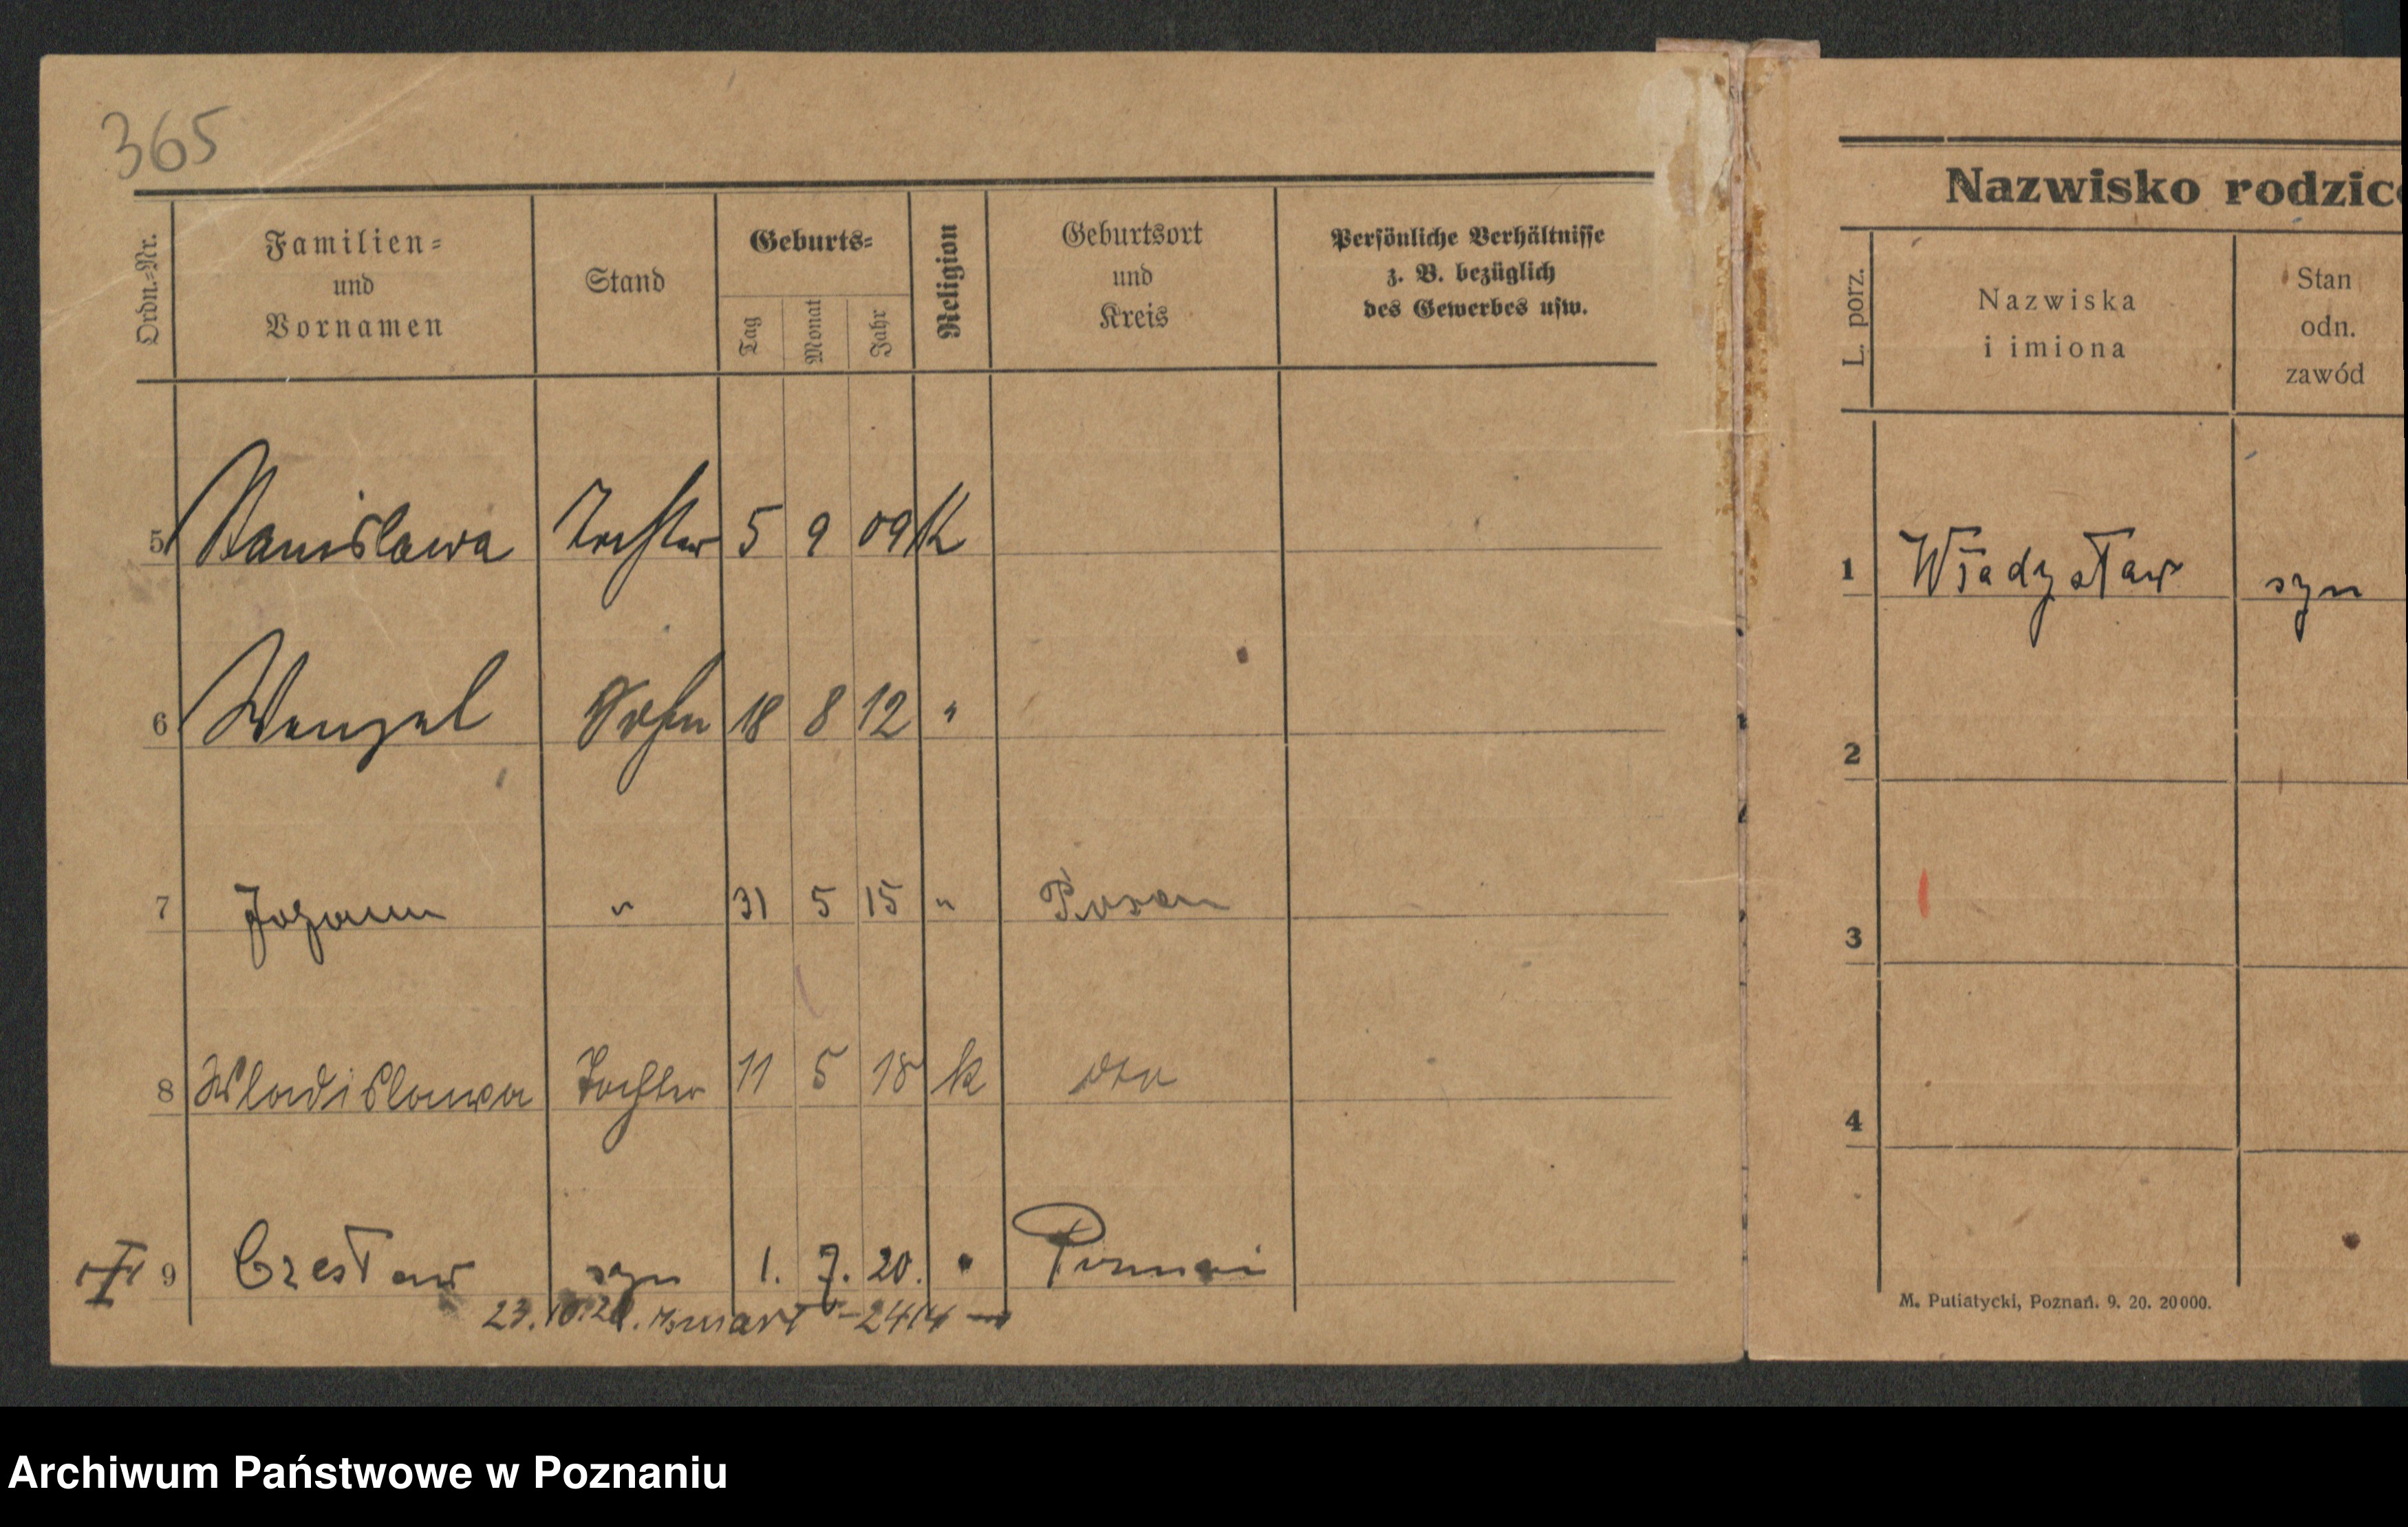 365
Nazwisko rodzic
Ordn.-Nr.
Familien-
und
Vornamen
Stand
Geburts-
Tag
Monat
Jahr
Religion
Geburtsort
und
Kreis
Persönliche Verhältnisse
z. B. bezüglich
des Gewerbes usw.
5 Stanislawa Tochter 5 9 09 K
6 Wenzel Sohn 18 8 12 "
7 Johann " 31 5 15 " Posen
8 Wladislawa Tochter 11 5 18 k dto
9 Czesław syn 1. 7. 20. " Poznań
23.10.20. zmarł - 2414 -
L. porz.
Nazwiska
i imiona
Stan
odn.
zawód
1 Władysław syn
2
3
4
M. Putiatycki, Poznań. 9. 20. 20000.
Archiwum Państwowe w Poznaniu